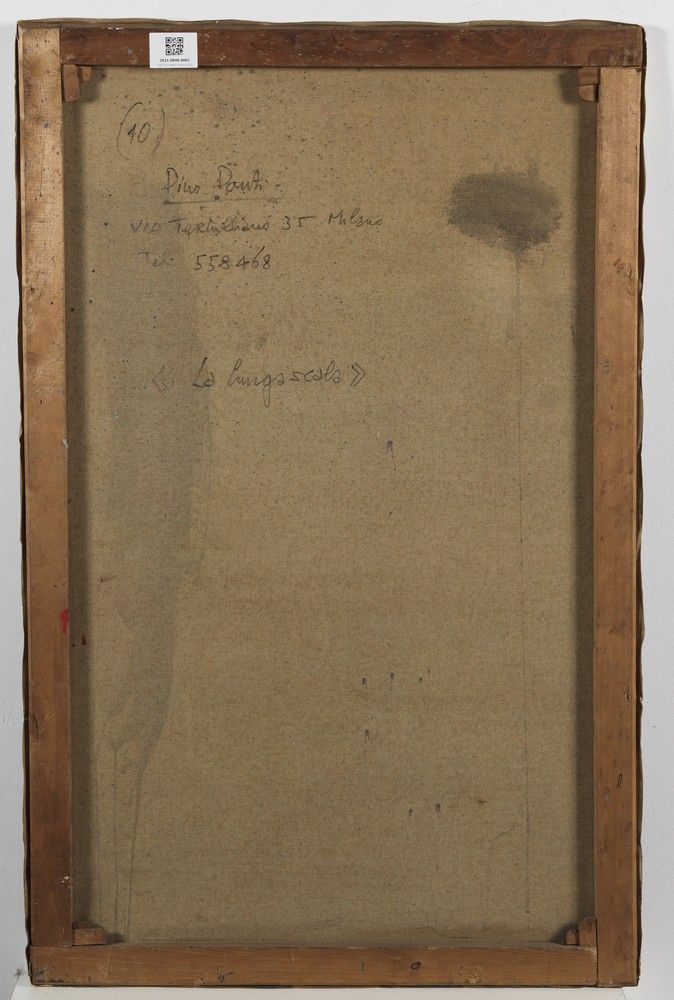 2021-0890-0002
(10)
Pino Ponti
Via Tertulliano 35 Milano
Tel. 558468
« La lunga scala »